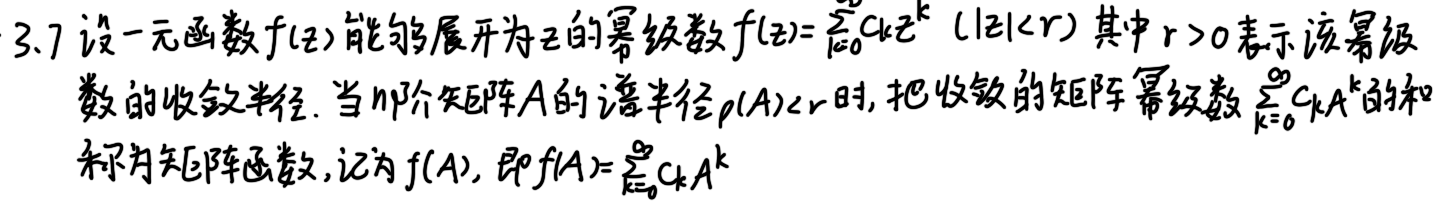 3.7 设一元函数f(z)能够展开为z的幂级数f(z)=∑_{k=0}^{∞}C_k z^k (|z|<r) 其中r>0表示该幂级
数的收敛半径.当n阶矩阵A的谱半径ρ(A)<r时,把收敛的矩阵幂级数∑_{k=0}^{∞}C_k A^k的和
称为矩阵函数,记为f(A),即f(A)=∑_{k=0}^{∞}C_k A^k